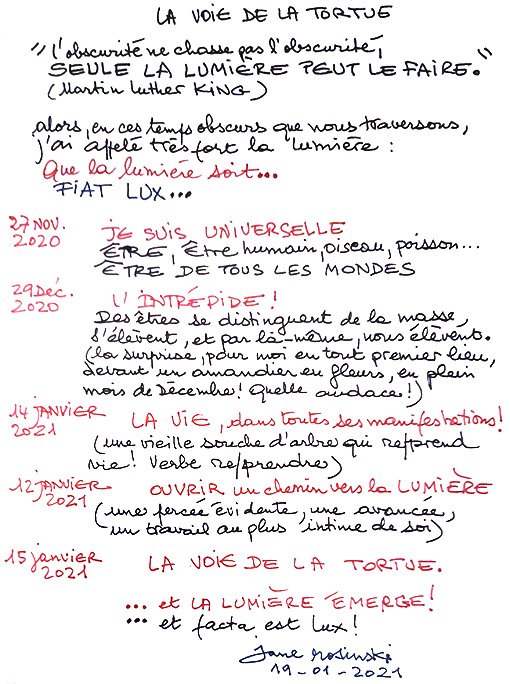 LA VOIE DE LA TORTUE
"L'obscurité ne chasse pas l'obscurité,
SEULE LA LUMIÈRE PEUT LE FAIRE."
(Martin Luther KING)
alors, en ces temps obscurs que nous traversons,
j'ai appelé très fort la lumière :
Que la lumière soit...
FIAT LUX...
27 NOV. 2020 JE SUIS UNIVERSELLE
ÊTRE, être humain, oiseau, poisson...
ÊTRE DE TOUS LES MONDES
29 Déc. 2020 L'INTRÉPIDE !
Des êtres se distinguent de la masse,
s'élèvent, et par là-même, nous élèvent.
(la surprise, pour moi en tout premier lieu,
devant un amandier en fleurs, en plein
mois de Décembre ! Quelle audace !)
14 JANVIER 2021 LA VIE, dans toutes ses manifestations !
(une vieille souche d'arbre qui re/prend
vie ! Verbe re/prendre)
12 JANVIER 2021 OUVRIR un chemin vers la LUMIÈRE
(une percée évidente, une avancée,
un travail au plus intime de soi)
15 janvier 2021 LA VOIE DE LA TORTUE.
... et LA LUMIÈRE ÉMERGE !
... et facta est lux !
Jane Rosinski
19-01-2021